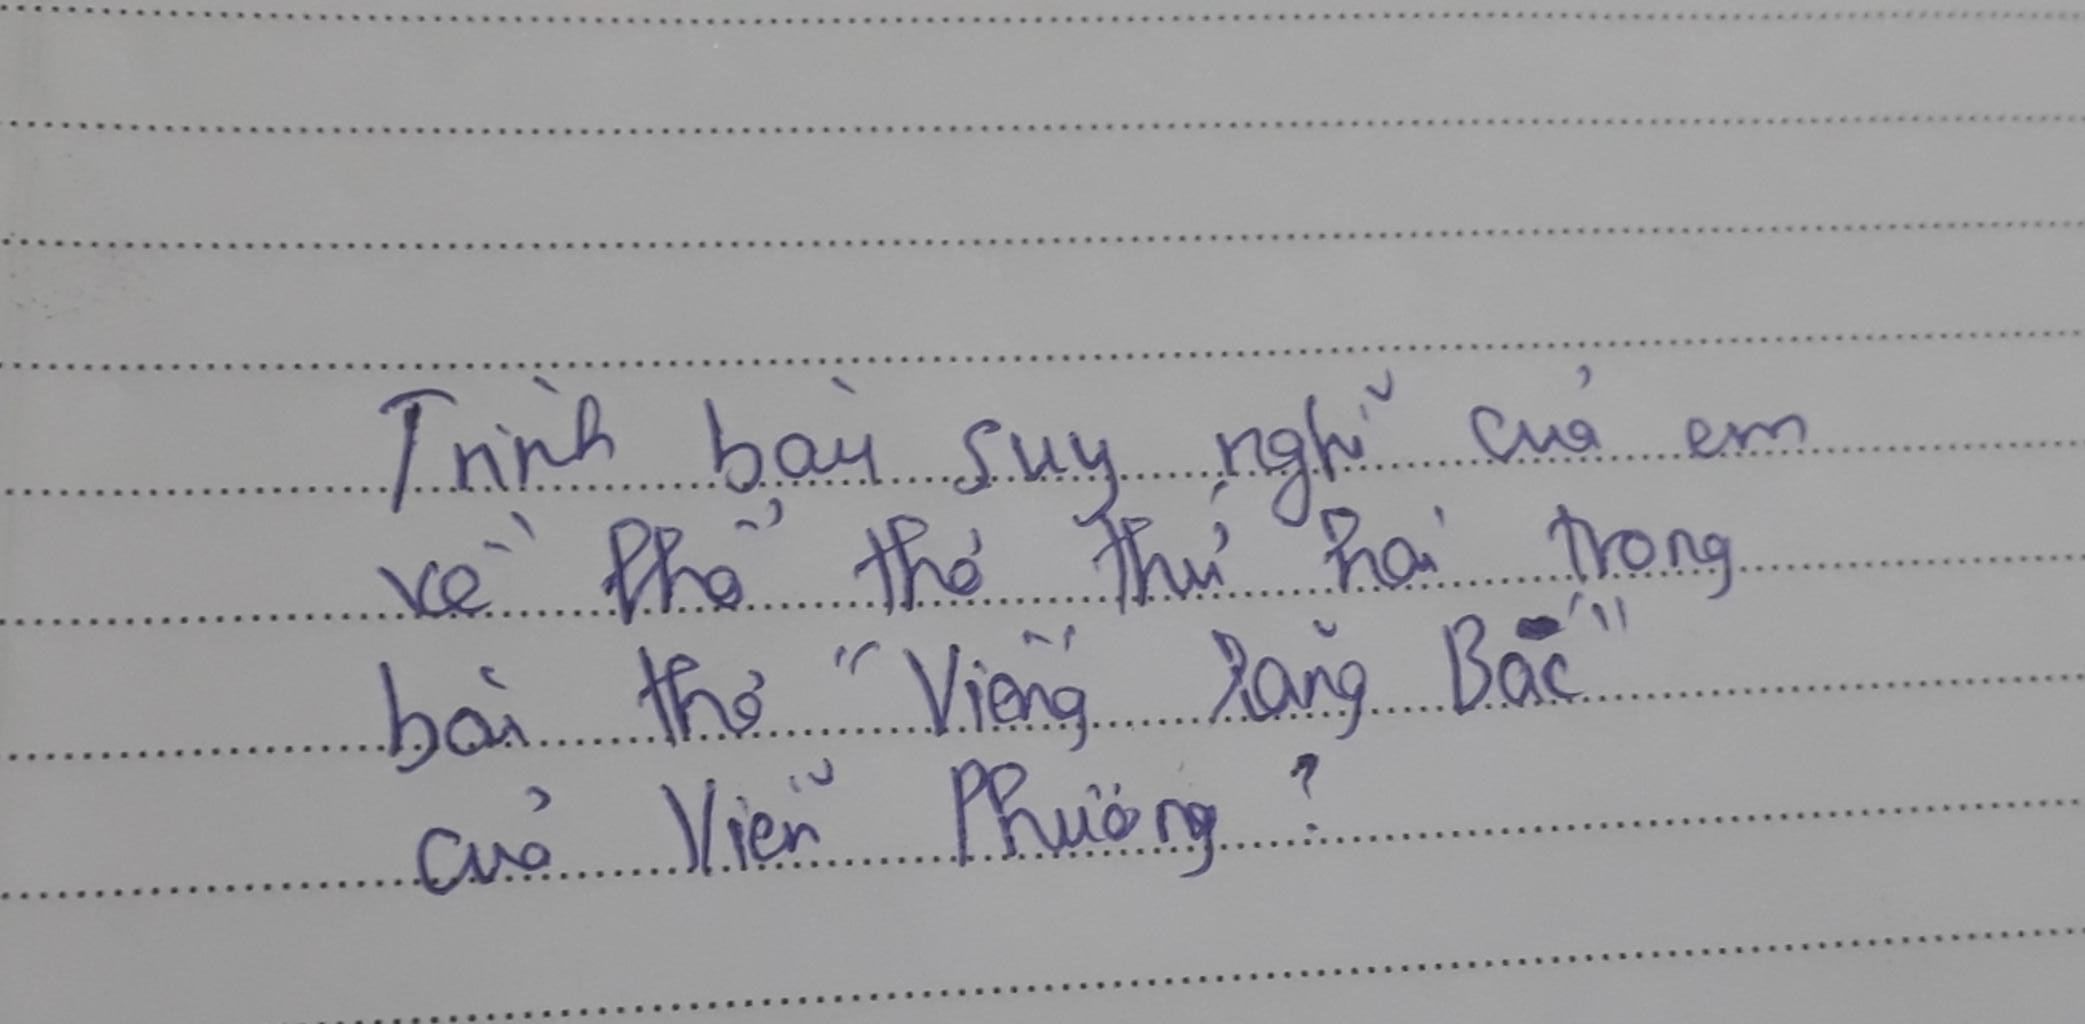 Trình bày suy nghĩ của em
về khổ thơ thứ hai trong
bài thơ "Viếng Lăng Bác"
của Viễn Phương?